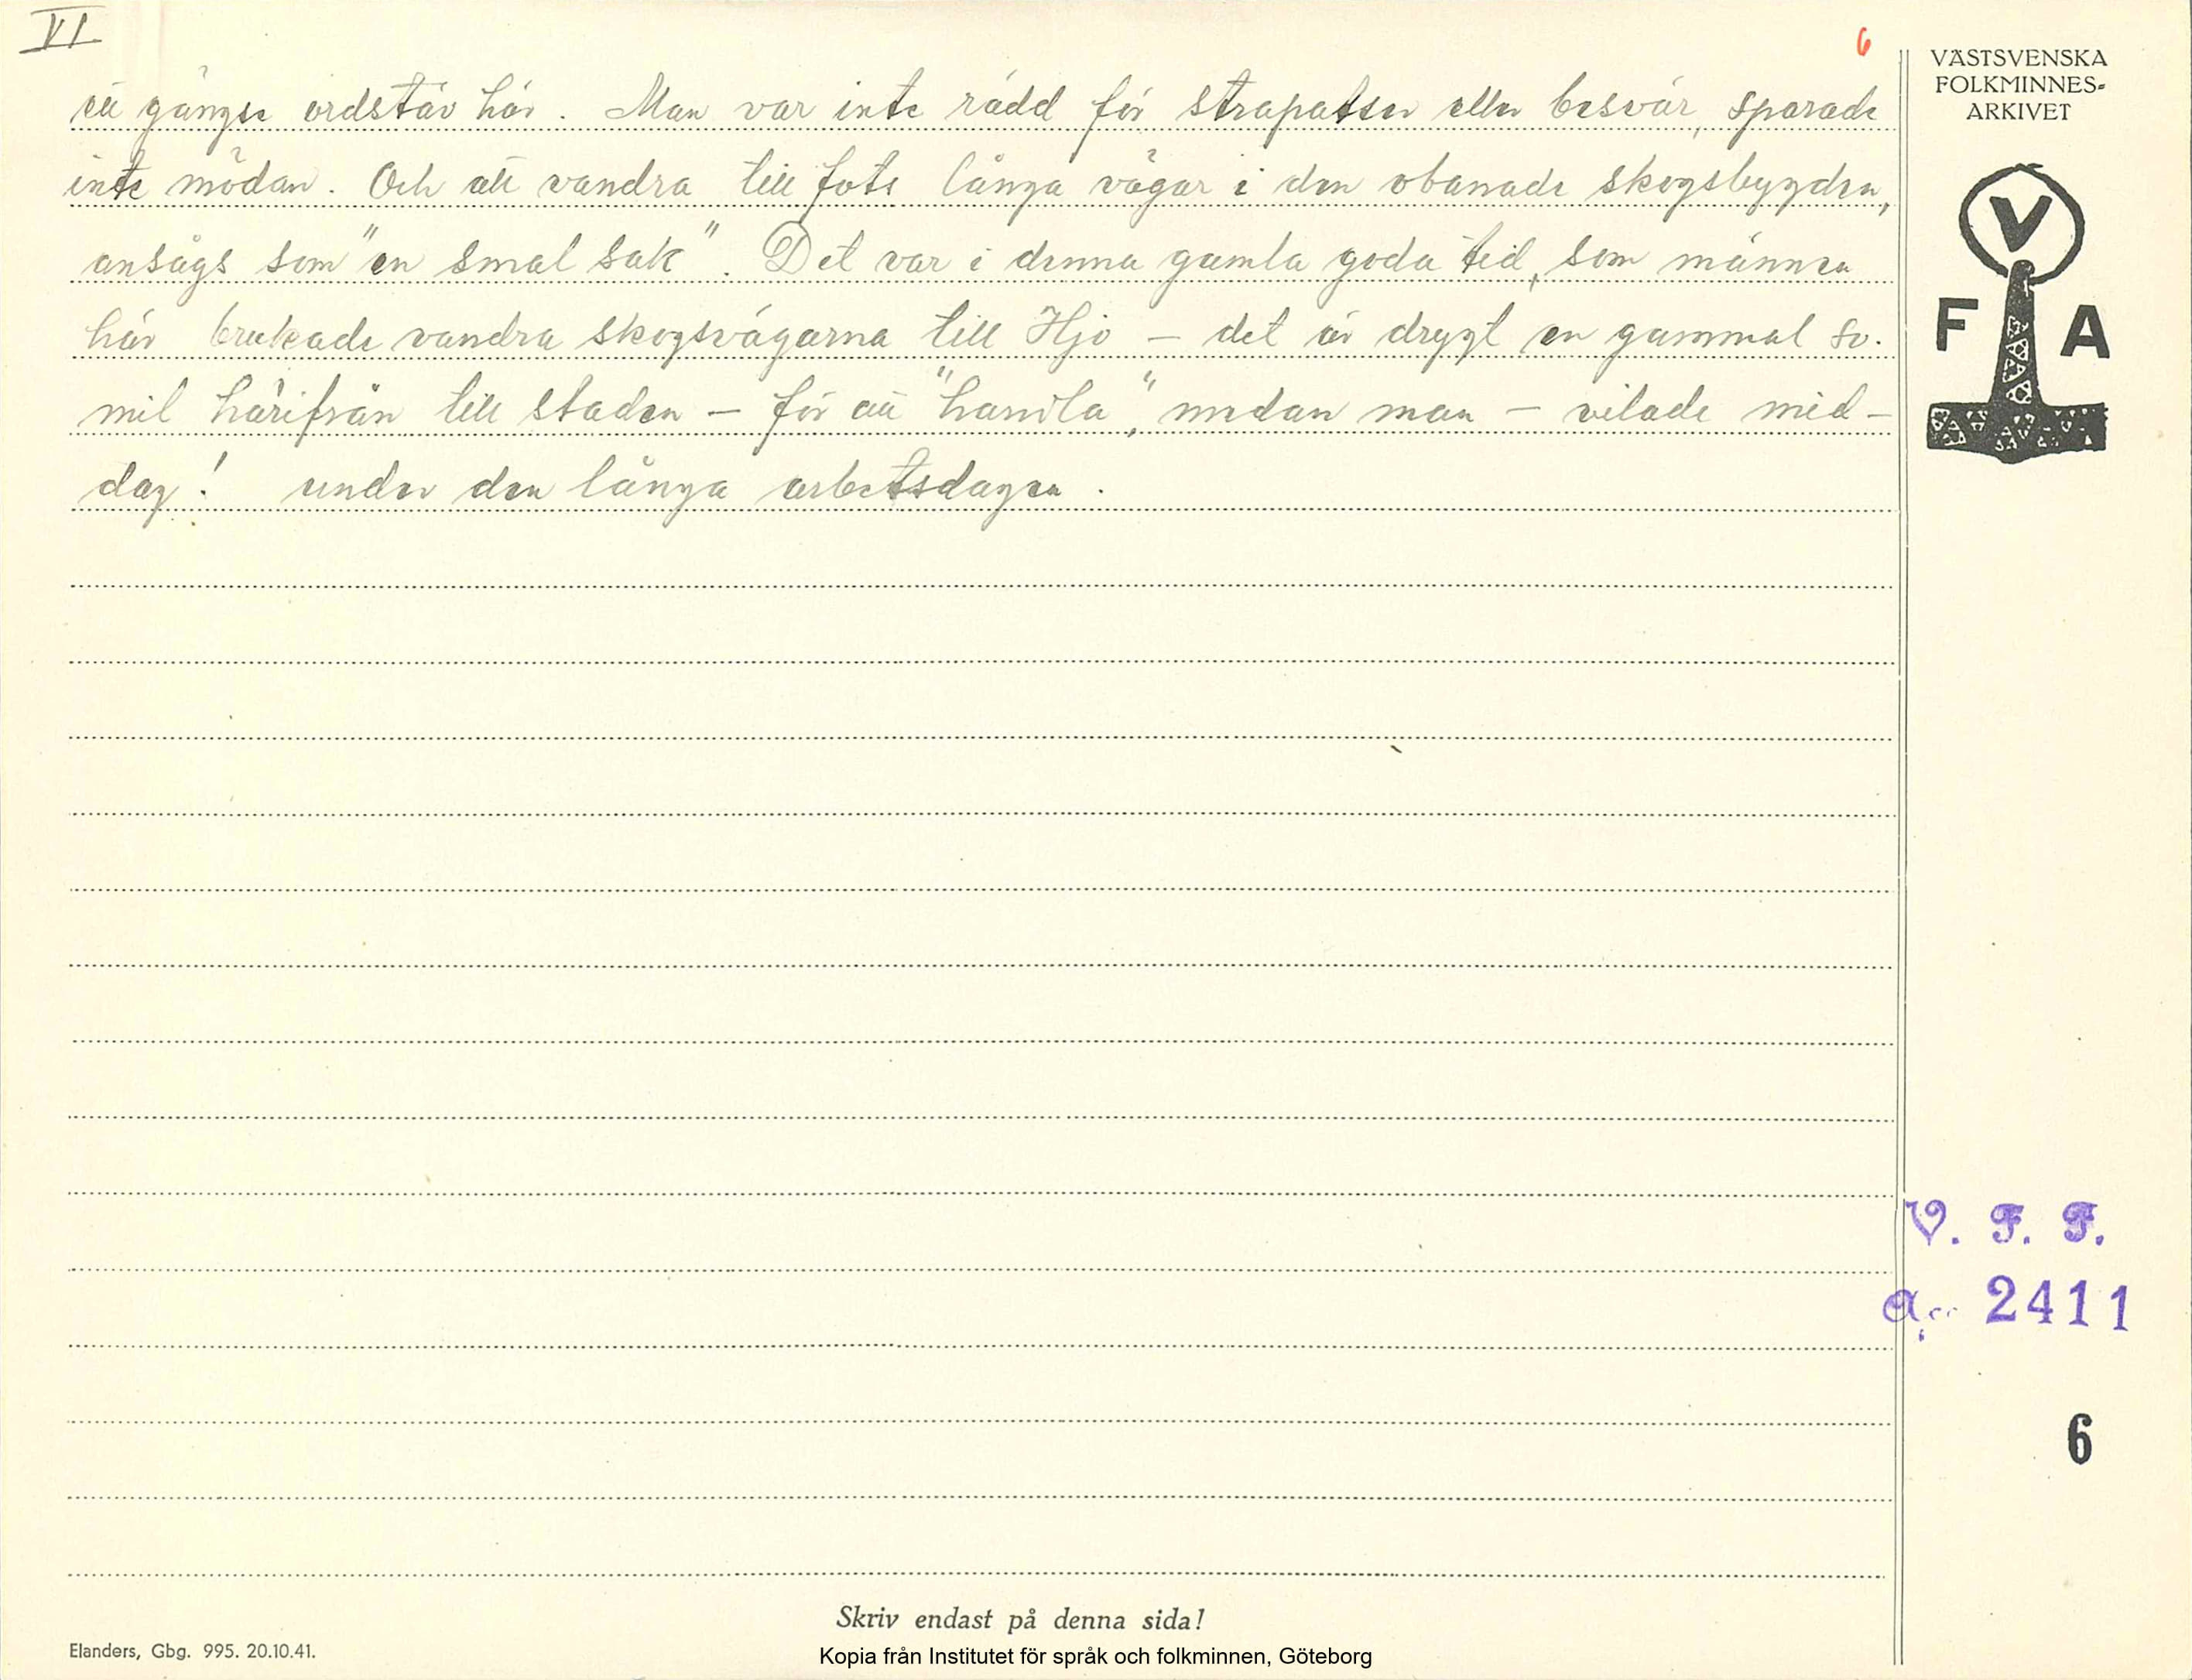 VI
6
ett gängse ordstäv här. Man var inte rädd för strapatser eller besvär, sparade
inte mödan. Och att vandra till fots långa vägar i den obanade skogsbygden,
ansågs som "en smal sak". Det var i denna gamla goda tid, som männen
här brukade vandra skogsvägarna till Hjo – det är drygt en gammal sv.
mil härifrån till staden – för att "handla", medan man – vilade mid-
dag! under den långa arbetsdagen.
VÄSTSVENSKA
FOLKMINNES-
ARKIVET
V
F A
V. F. F.
acc. 2411
6
Skriv endast på denna sida!
Elanders, Gbg. 995. 20.10.41.
Kopia från Institutet för språk och folkminnen, Göteborg